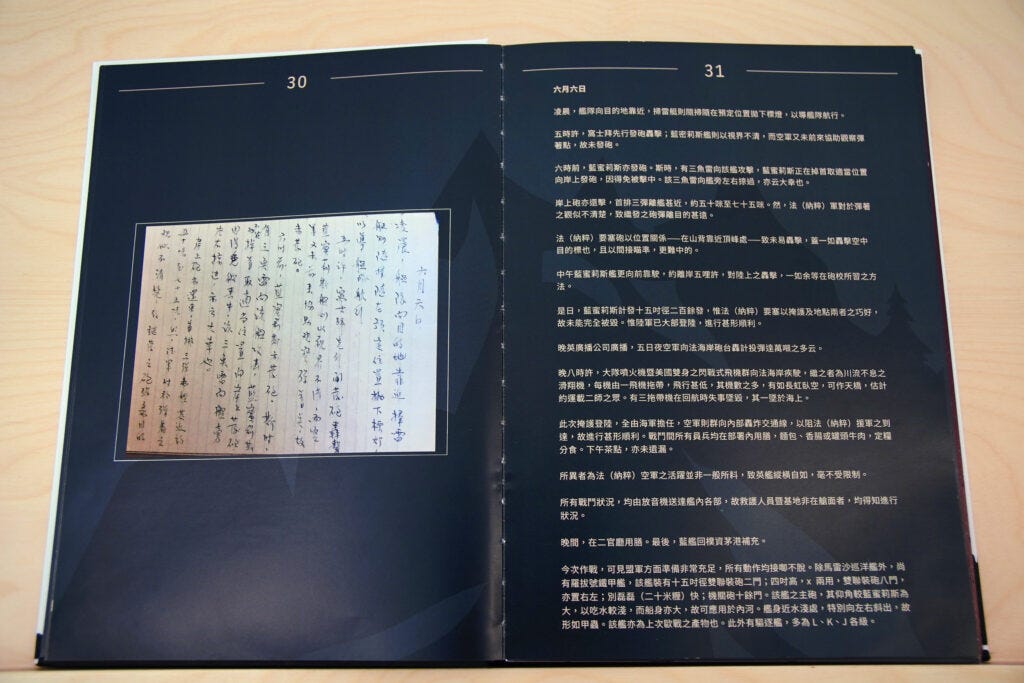 30
六月六日
凌晨 艦隊向目的地靠近 掃雷
艇則隨掃隨在預定位置拋下標灯
以導艦隊航行
31
六月六日
凌晨,艦隊向目的地靠近,掃雷艇則隨掃隨在預定位置拋下標燈,以導艦隊航行。
五時許,窩士拜先行發砲轟擊;藍密莉斯艦則以視界不清,而空軍又未前來協助觀察彈
著點,故未發砲。
六時前,藍蜜莉斯亦發砲。斯時,有三魚雷向該艦攻擊,藍蜜莉斯正在掉首取適當位置
向岸上發砲,因得免被擊中。該三魚雷向艦旁左右掠過,亦云大幸也。
岸上砲亦還擊,首排三彈離艦甚近,約五十咪至七十五咪。然,法(納粹)軍對於彈著
之觀似不清楚,致繼發之砲彈離目的甚遠。
法(納粹)要塞砲以位置關係──在山背靠近頂峰處──致未易轟擊,蓋一如轟擊空中
目的標也,且以間接瞄準,更難中的。
中午藍蜜莉斯艦更向前靠駛,約離岸五哩許,對陸上之轟擊,一如余等在砲校所習之方
法。
是日,藍蜜莉斯計發十五吋徑二百餘發,惟法(納粹)要塞以掩護及地點兩者之巧好,
故未能完全被毀。惟陸軍已大部登陸,進行甚形順利。
晚英廣播公司廣播,五日夜空軍向法海岸砲台轟計投彈達萬噸之多云。
晚八時許,大隊噴火機暨美國雙身之閃戰式飛機群向法海岸疾駛,繼之者為川流不息之
滑翔機,每機由一飛機拖帶,飛行甚低,其機數之多,有如長虹臥空,可作天橋,估計
約運載二師之眾。有三拖帶機在回航時失事墜毀,其一墜於海上。
此次掩護登陸,全由海軍擔任,空軍則群向內部轟炸交通線,以阻法(納粹)援軍之到
達,故進行甚形順利。戰鬥間所有員兵均在部署內用膳,麵包、香腸或罐頭牛肉,定糧
分食。下午茶點,亦未遺漏。
所異者為法(納粹)空軍之活躍並非一般所料,致英艦縱橫自如,毫不受限制。
所有戰鬥狀況,均由放音機送達艦內各部,故救護人員暨基地非在艙面者,均得知進行
狀況。
晚間,在二官廳用膳。最後,藍艦回樸資茅港補充。
今次作戰,可見盟軍方面準備非常充足,所有動作均接啣不脫。除馬雷沙巡洋艦外,尚
有羅拔號鐵甲艦,該艦裝有十五吋徑雙聯裝砲二門;四吋高,x 兩用,雙聯裝砲八門,
亦置右左;別磊磊(二十米糎)快;機關砲十餘門。該艦之主砲,其仰角較藍蜜莉斯為
大,以吃水較淺,而船身亦大,故可應用於內河。艦身近水淺處,特別向左右斜出,故
形如甲蟲。該艦亦為上次歐戰之產物也。此外有驅逐艦,多為 L、K、J 各級。